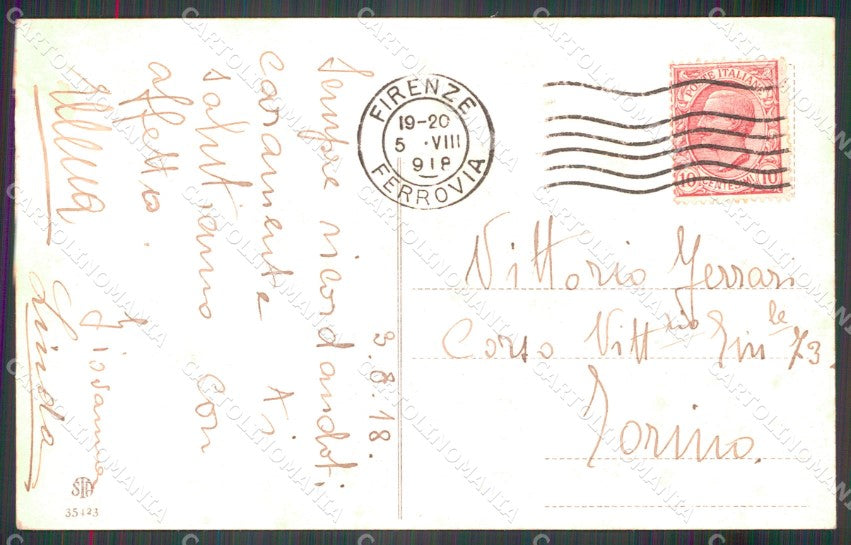 3.8.18.
Sempre ricordandoti
caramente ti
salutiamo con
affetto.
Elena
Giovanna
Linda
STA
35423
FIRENZE
19-20
5 · VIII
918
FERROVIA
POSTE ITALIANE
10 CENTESIMI 10
Vittorio Ferrari
Corso Vitt.rio Em.le 73.
Torino.
CARTOLINOMANIA